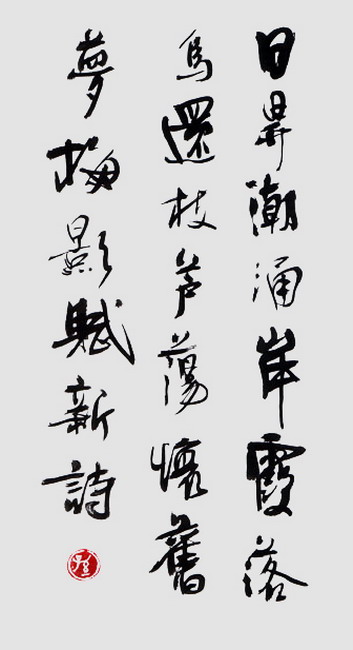 日昇潮涌岸霞落
鳥還枝芦蕩懷舊
夢梅影賦新詩